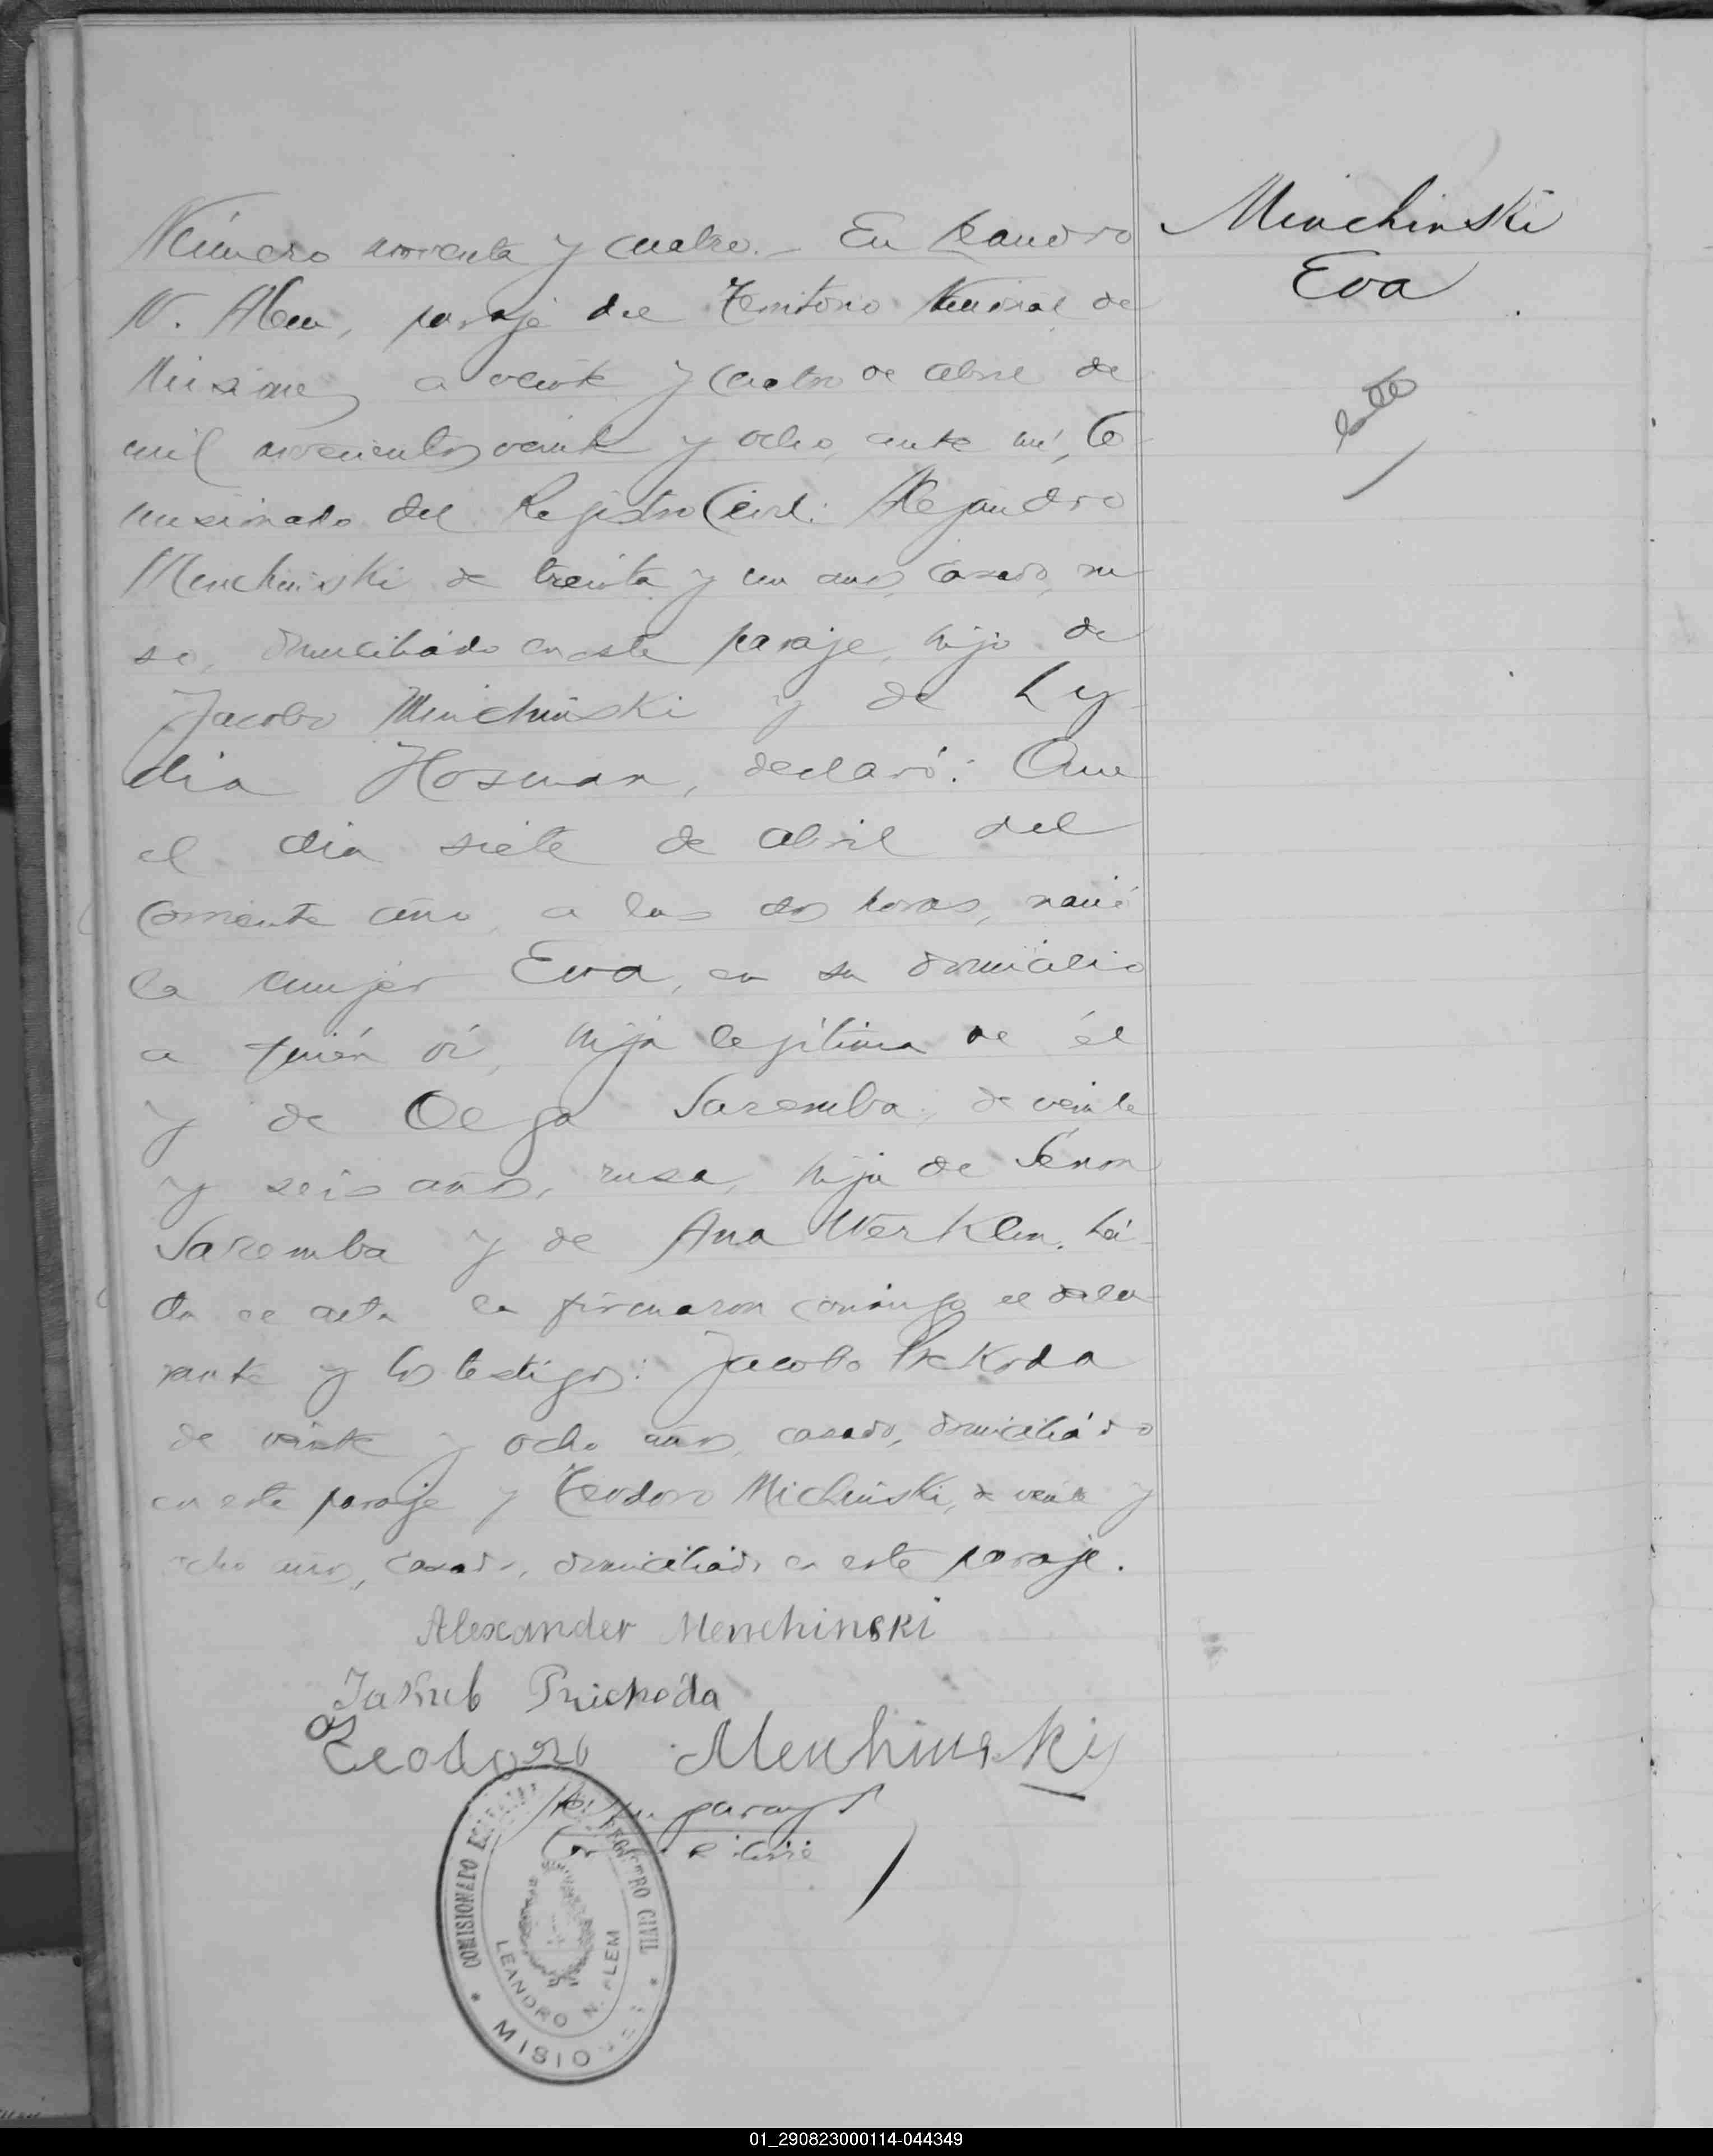 Minchinski
Eva
Número noventa y cuatro.- En Leandro
N. Alem, paraje del Territorio Nacional de
Misiones a veinte y cuatro de abril de
mil novecientos veinte y ocho, ante mí, Co-
misionado del Registro Civil: Alejandro
Menchinski de treinta y un años, casado, ru
so, domiciliado en este paraje, hijo de
Jacobo Minchinski y de Ly-
dia Hosman, declaró: Que
el dia siete de abril del
corriente año, a las dos horas, nació
la mujer Eva, en su domicilio
a quién ví, hija legítima de él
y de Olga Saremba, de veinte
y seis años, rusa, hija de Senon
Saremba y de Ana Werklen. Leí-
da el acta la firmaron conmigo el decla
rante y los testigos: Jacobo Prekoda
de veinte y ocho años, casado, domiciliádo
en este paraje y Teodoro Michinski, de veinte y
ocho años, casado, domiciliado en este paraje.
Alexander Menchinski
Jakub Prichoda
Teodoro Menhinskij
COMISIONADO REGISTRO CIVIL
LEANDRO N. ALEM
MISIONES
01_290823000114-044349